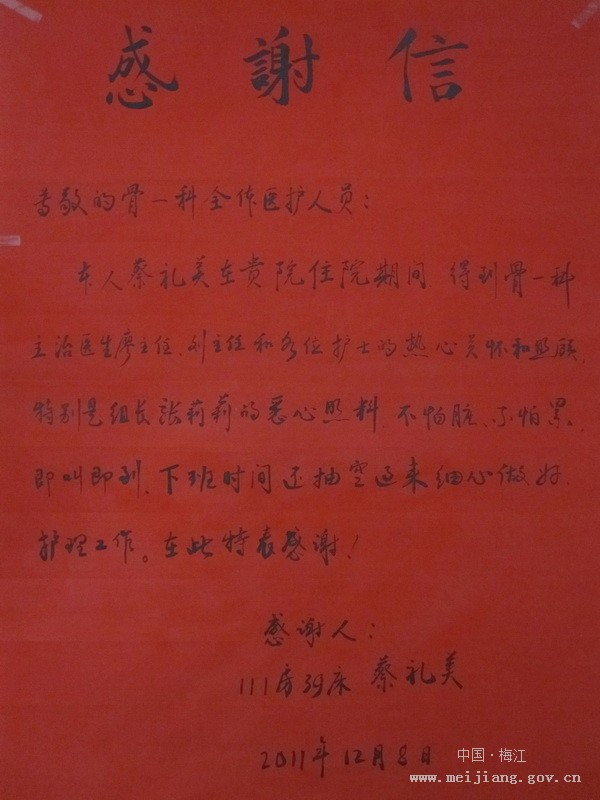 感謝信
尊敬的骨一科全体医护人员：
本人蔡礼美在贵院住院期间 得到骨一科
主治医生廖主任、刘主任和各位护士的热心关怀和照顾，
特别是组长张莉莉的悉心照料，不怕脏、不怕累、
即叫即到，下班时间还抽空过来细心做好
护理工作。在此特表感谢！
感谢人：
111房39床 蔡礼美
2011年12月8日
中国·梅江
www.meijiang.gov.cn